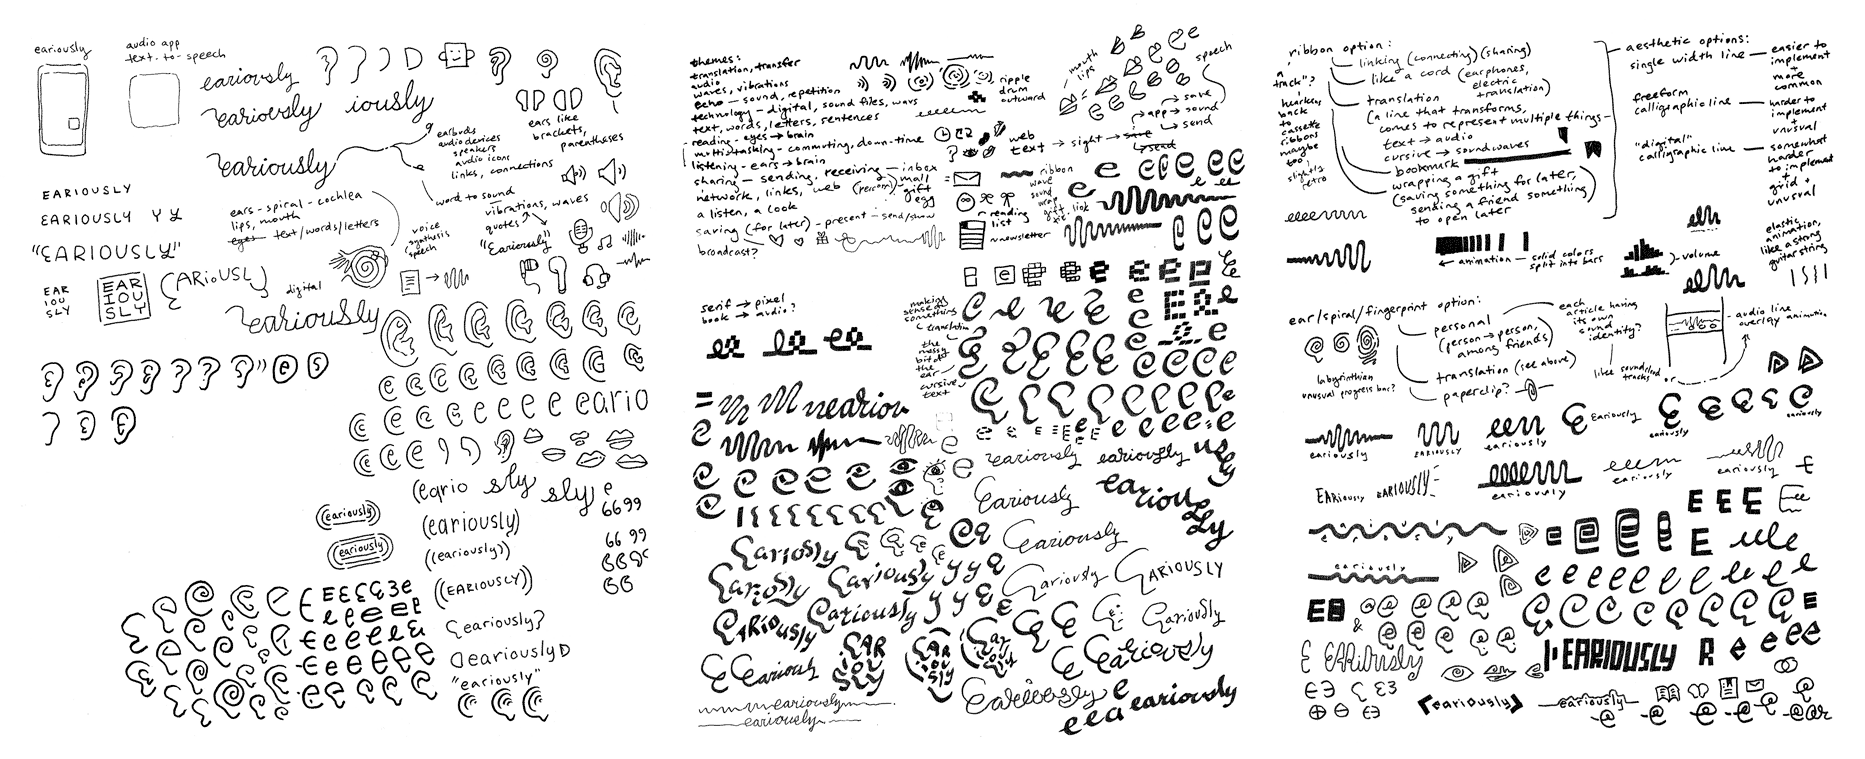 eariously
audio app
text-to-speech
eariously
eariously
iously
eariously
earbuds
audio devices
speakers
audio icons
links, connections
ears like
brackets,
parentheses
EARIOUSLY
EARIOUSLY Y Y
"EARIOUSLY"
EAR
IOU
SLY
EAR
IOU
SLY
EARIOUSLY
ears - spiral - cochlea
lips, mouth
eyes - text/words/letters
digital
voice
synthesis
speech
word to sound
vibrations, waves
quotes
"Eariously"
eariously
e s
eario
(eario
sly
sly
e
66 99
(eariously)
(eariously)
(eariously)
((eariously))
((EARIOUSLY))
66 99
66
eariously?
eariously
"eariously"
themes:
translation, transfer
audio
waves, vibrations
echo - sound, repetition
technology - digital, sound files, wavs
text, words, letters, sentences
reading - eyes → brain
multitasking - commuting, down-time
listening - ears → brain
sharing - sending, receiving - inbox
mail
gift
egg
network, links, web (percom)
a listen, a look
saving (for later) - present - send/show
broadcast?
ripple
drum
outward
mouth
lips
speech
web
text → sight → save
send
app → sound
save
send
ribbon
wave
sound
wrap
gift
link
reading
list
newsletter
serif → pixel
book → audio?
making
sense of
something
translation
the
messy
bit of
the
ear
cursive
text
neariou
eariously
eariously
usly
Eariously
eariously
Eariously
Eariously
Eariously
Eariously
EARIOUSLY
Eariously
Eariously
EARiously
Eariously
Eariously
EAR
IOU
SLY
EAR
IOU
SLY
Ear
iou
sly
Eariously
Eariously
eariously
eariously
eariously
ribbon option:
linking (connecting) (sharing)
like a cord (earphones,
electric,
translation)
translation
(a line that transforms,
comes to represent multiple things -
text → audio
cursive → soundwaves
bookmark
wrapping a gift
(saving something for later,
sending a friend something
to open later)
a
track"?
hearkens
back
to
cassette
ribbons
maybe
too?
slightly
retro
aesthetic options:
single width line — easier to
implement
+
more
common
freeform
calligraphic line — harder to
implement
+
unusual
"digital"
calligraphic line — somewhat
harder
to implement
grid +
unusual
← animation — solid colors
split into bars
volume
elastic
animation,
like a strong
guitar string
ear/spiral/fingerprint option:
personal
(person → person,
among friends)
translation (see above)
paperclip?
each
article having
its own
sound
identity?
like soundcloud
tracks
or
audio line
overlay animation
labyrinthian
unusual progress bar?
eariously
EARIOUSLY
eariously
Eariously
eariously
eariously
EARiously
EARIOUSLY
eariously
eariously
eariously
E E E
eariously
&
EARiously
EARIOUSLY
R e e e e
eariously
eariously